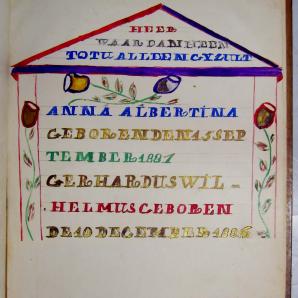 HEER
WAAR DAN HEEN
TOT U ALLEEN GY ZULT
ANNA ALBERTINA
GEBOREN DEN 15 SEP
TEMBER 1881
GERHARDUS WIL-
HELMUS GEBOREN
DE 10 DECEMBER 1886